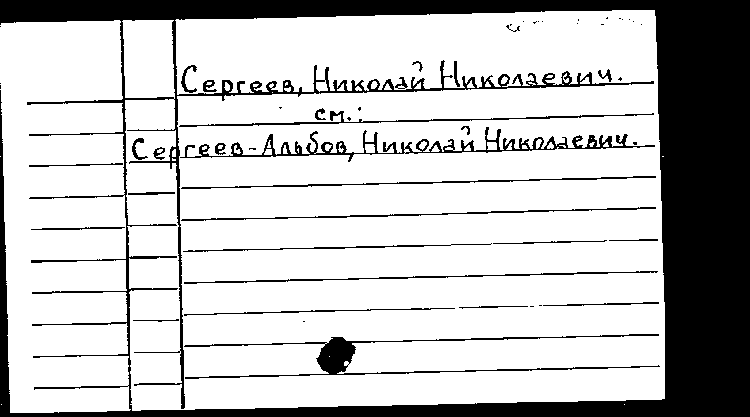 Сергеев, Николай Николаевич.
см.:
Сергеев-Альбов, Николай Николаевич.